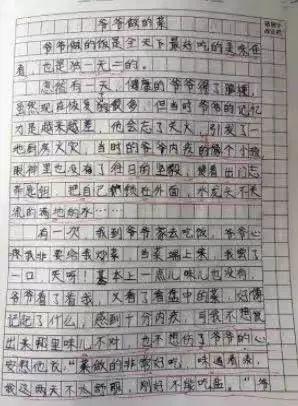 爷爷做的菜
爷爷做的饭是全天下最好吃的美味佳
肴，也是独一无二的。
忽然有一天，健康的爷爷得了脑梗，
虽然现在恢复的很多，但当时爷爷的记忆
力是越来越差，他会忘了关火，引发了一
场厨房火灾，当时的爷爷内疚的像个小孩
眼神里也没有了往日的坚毅，
把自己锁在外面，水龙头不关
流的满地的水……
有一次，我到爷爷家去吃饭，爷爷心
疼我非要给我炒菜，当菜端上来，我尝了
一口，天呀！基本上一点儿味儿也没有，
爷爷看了看我，又看了看盘中的菜，好像
记起了什么，感到十分内疚，可我不想说
出来那里味儿不对，也不想伤了爷爷的心，
安慰他说：“菜做的非常好吃，味道
我这两天不太舒服，刚好不能吃盐。”爷